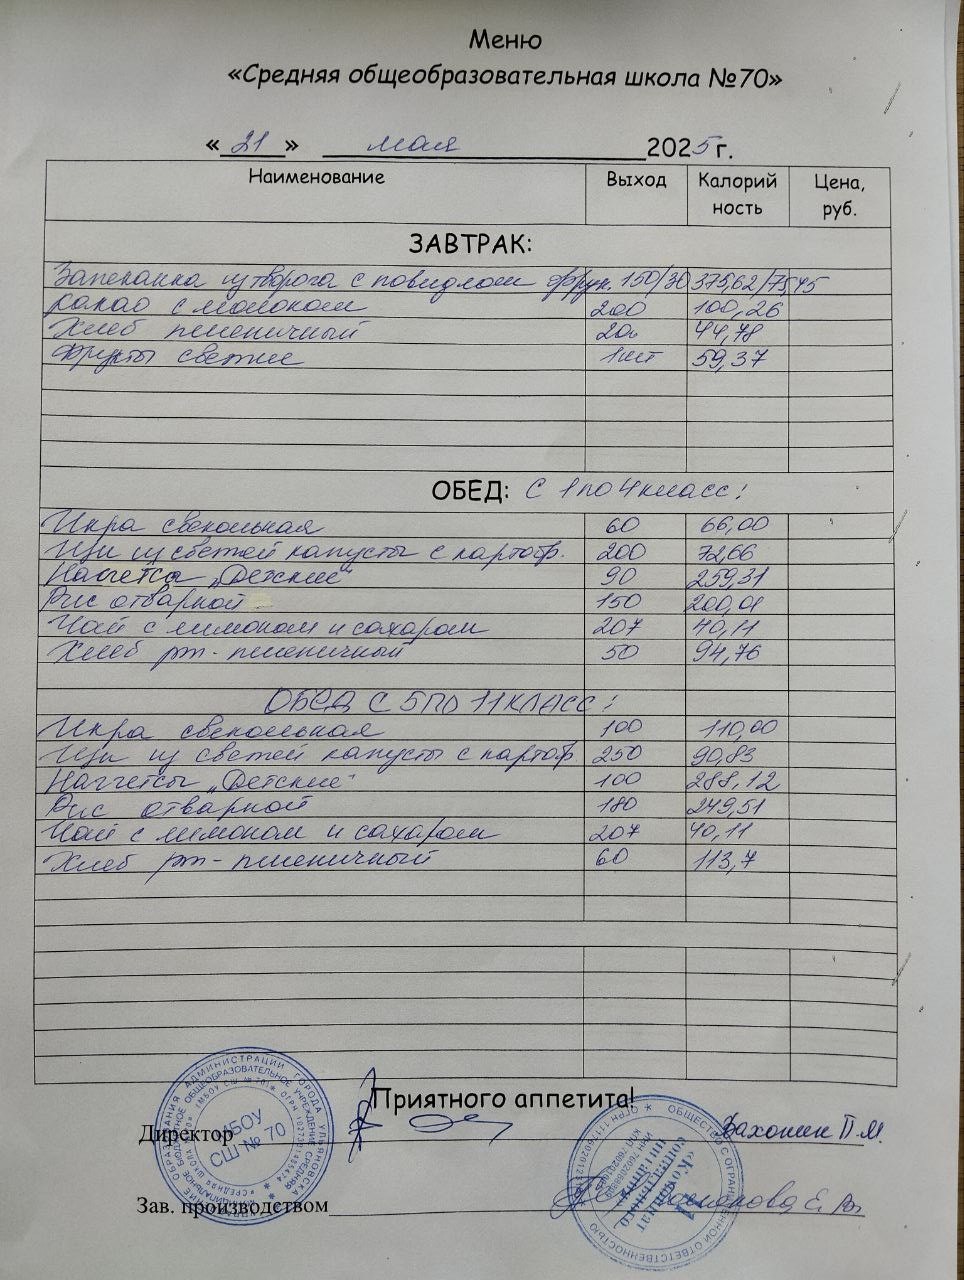 Меню
«Средняя общеобразовательная школа №70»
«21» мая 2025г.
Наименование Выход Калорий ность Цена, руб.
ЗАВТРАК:
Запеканка из творога с повидлом фрук. 150/30 375,62/75,45
какао с молоком 200 100,26
Хлеб пшеничный 20 44,78
Фрукты свежие 1шт 59,37
ОБЕД: с 1 по 4 класс:
Икра свекольная 60 66,00
Щи из свежей капусты с картоф. 200 72,66
Наггетсы „Детские" 90 259,31
Рис отварной 150 200,01
Чай с лимоном и сахаром 207 40,11
Хлеб рж-пшеничный 50 94,76
ОБЕД С 5 ПО 11 КЛАСС:
Икра свекольная 100 110,00
Щи из свежей капусты с картоф 250 90,83
Наггетсы „Детские" 100 288,12
Рис отварной 180 249,51
Чай с лимоном и сахаром 207 40,11
Хлеб рж-пшеничный 60 113,7
Приятного аппетита!
Директор П.М.
МБОУ
СШ № 70
Зав. производством
«Комбинат
социального
питания»